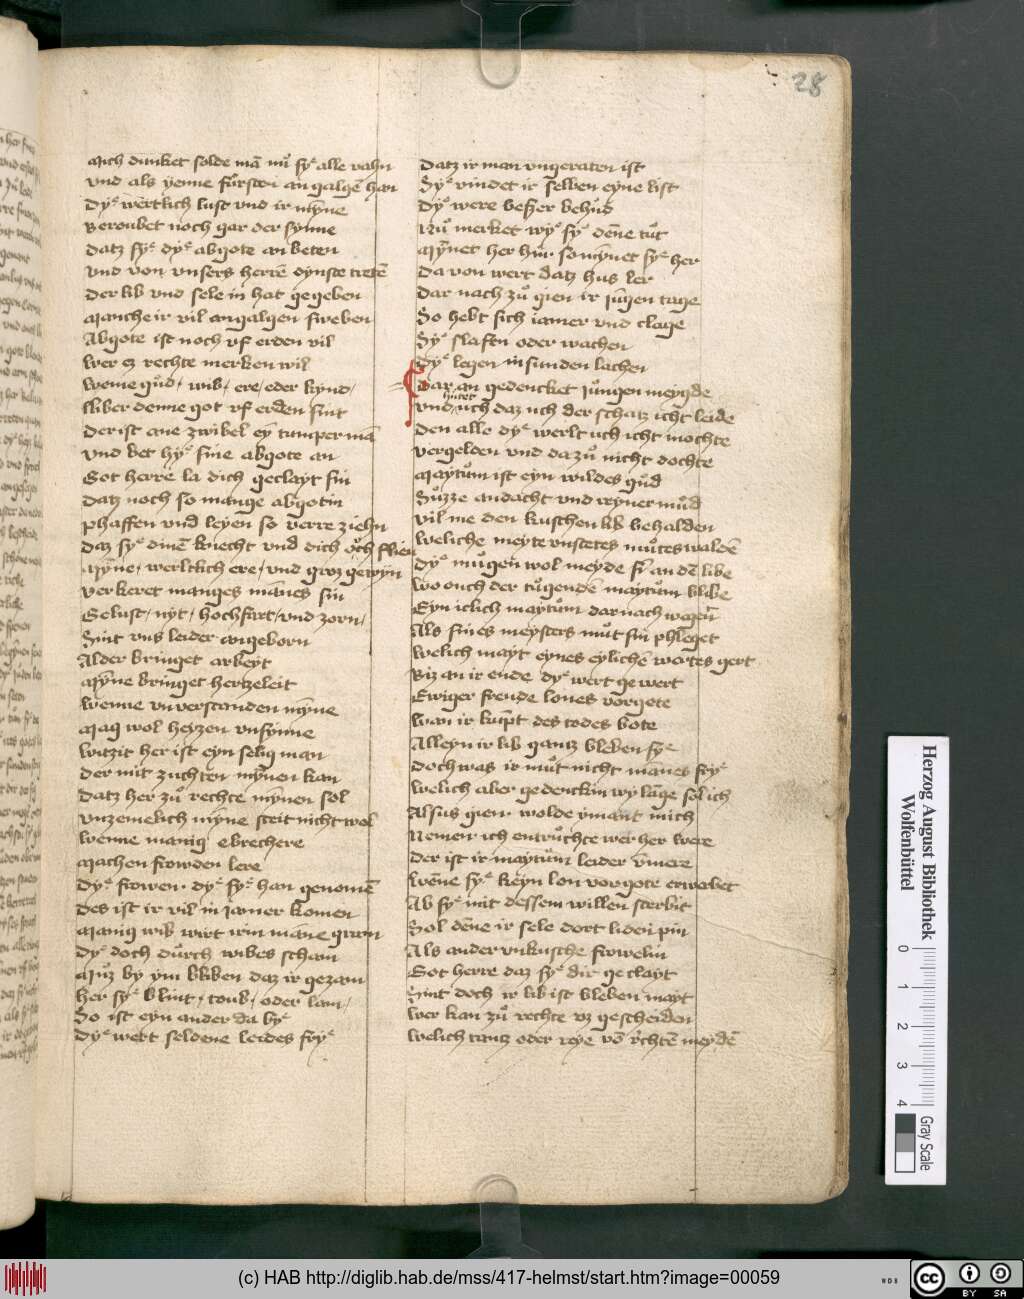 28
Mich dunket solde mā mᷣ syͤ alle vahn
Vnd als yenne fursten an galgē han
Dyͤ wertlich lust vnd ir mȳne
Beroubet noch gar der synne
Datz syͤ dyͤ abgote an beten
Vnd von vnsers herrē dynste tretē
Der lib vnd sele in hat gegeben
Manche ir vil an galgen sweben
Abgote ist noch vf erden vil
Wer ez rechte merken wil
Weme gůd, wib, ere, oder kynd,
Liber denne got vf erden sint
Der ist ane zwibel eȳ tumper mā
Vnd bet hyͤ sine abgote an
Got herre la dich geclayt sin
Datz noch so mange abgotin
Phaffen vnd leyen so verre ziehn
Daz syͤ dinē knecht vnd dich och flien
Mȳne, werltlich ere, vnd groz gewyn
Verkeret manges mānes sin
Gelust, nyt, hochfart, vnd zorn,
Sint vns leider angeborn
Alder bringet arbeyt
Mȳne bringet hertzeleit
Wenne vnverstanden mȳne
Mag wol heyzen vnsynne
Witzit her ist eyn selig man
Der mit zuchten mȳnen kan
Datz her zů rechte mȳnen sol
Vnzemelich mȳne steit nicht wol
Wenne manig ebrechere
Machen frowden lere
Dyͤ frowen, dyͤ syͤ han genomē
Des ist ir vil in jamer komen
Manig wib wirt irm mane gram
Dyͤ doch důrch wibes scham
Můz by ym bliben daz ir gezam
Her syͤ blint, toub, oder lam,
So ist eyn ander da byͤ
Dyͤ wert seldene leides fryͤ
Datz ir man vngeraten ist
Syͤ vindet ir selben eyne list
Dyͤ were beßer behůd
Nů merket wyͤ syͤ dēne tůt
Mȳnet her hur so mȳnet syͤ her
Da von wert datz hus ler
Dar nach zů gien ir jungen tage
So hebt sich iamer vnd clage
Syͤ slafen oder wachen
Syͤ legen in sunden lachen
Dar an gedencket jungen meyde
hutet
Vnd uch daz uch der schatz icht leide
Den alle dyͤ werlt uch icht mochte
Vergelden vnd dazů nicht dochte
Maytům ist eyn wildes gůd
Sůzze andacht vnd reyner můd
Vil me den kuschen lib behalden
Weliche meyte vnstetes můtes waldē
Dyͤ můgen wol meyde sī an dē libe
Wo ouch der tůgendē maytům blibe
Eyn iclich maytům dar nach wagen
Als sines meysters můt sin phleget
Welich mayt eynes eylichē wertes gert
Biz an ir ende dyͤ wert gewert
Ewiger freude lones vor gote
Wan ir kūpt des todes bote
Alleyn ir lib gantz bleben syͤ
Doch was ir můt nicht mānes fryͤ
Welich aber gedenckin wy lāge sol ich
Alsus gien, wolde ymant mich
Nemen ich enrůchte wer her were
Der ist ir maytům leider vmere
Wēne syͤ keyn lon vor gote erwobet
Ab syͤ mit dessem willen sterbit
Sol dēne ir sele dort liden pin
Als ander vnkusche frowelin
Got herre daz syͤ dir geclayt
Sint doch ir lib ist bleben mayt
Wer kan zů rechte vz gescheiden
Welich tantz oder reye vō rechtē meydē
Herzog August Bibliothek
Wolfenbüttel
0 1 2 3 4
Gray Scale
(c) HAB http://diglib.hab.de/mss/417-helmst/start.htm?image=00059
WDB
cc BY SA